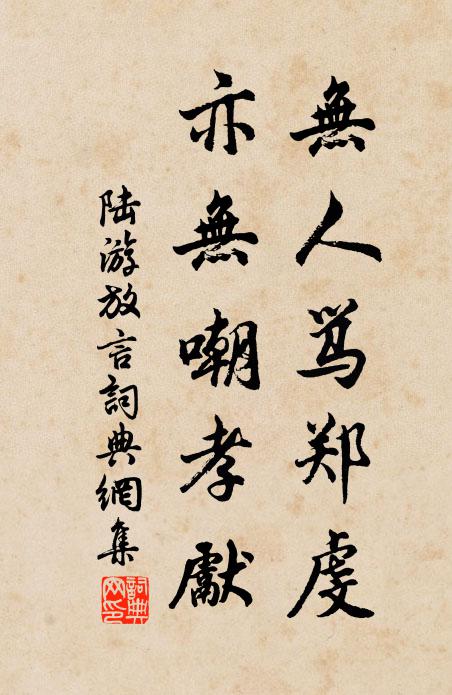 無人骂郑虔
亦無嘲孝獻
陆游放言詞典網集
詞典网印